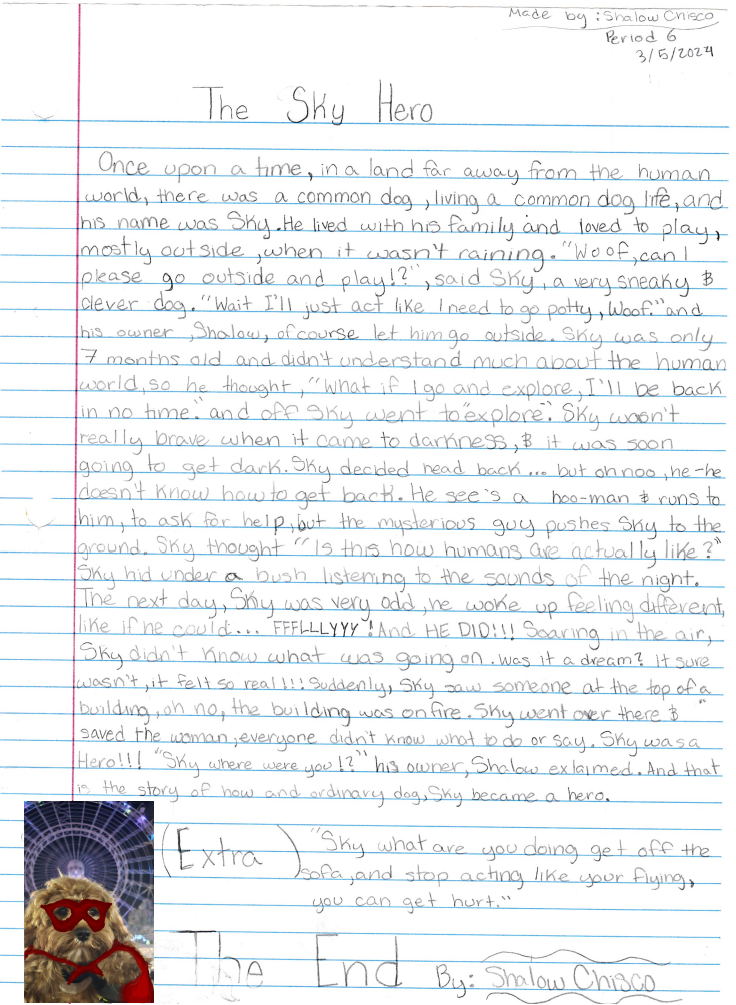 Made by: Shalow Chisco
Period 6
3/5/2024
The Sky Hero
Once upon a time, in a land far away from the human
world, there was a common dog, living a common dog life, and
his name was Sky. He lived with his family and loved to play,
mostly outside, when it wasn't raining. "Woof, can I
please go outside and play!?", said Sky, a very sneaky &
clever dog. "Wait I'll just act like I need to go potty, Woof." and
his owner, Shalow, of course let him go outside. Sky was only
7 months old and didn't understand much about the human
world, so he thought, "What if I go and explore, I'll be back
in no time." and off Sky went to "explore". Sky wasn't
really brave when it came to darkness, & it was soon
going to get dark. Sky decided head back... but oh noo, he-he
doesn't know how to get back. He see's a hoo-man & runs to
him, to ask for help, but the mysterious guy pushes Sky to the
ground. Sky thought "Is this how humans are actually like?"
Sky hid under a bush listening to the sounds of the night.
The next day, Sky was very odd, he woke up feeling different,
like if he could... "FFFLLLYYY"! And HE DID!!! Soaring in the air,
Sky didn't know what was going on. Was it a dream? It sure
wasn't, it felt so real!!! Suddenly, Sky saw someone at the top of a
building, oh no, the building was on fire. Sky went over there & "
saved the woman, everyone didn't know what to do or say. Sky was a
Hero!!! "Sky where were you!?" his owner, Shalow exlaimed. And that
is the story of how and ordinary dog, Sky became a hero.
(Extra) "Sky what are you doing get off the
sofa, and stop acting like your flying,
you can get hurt."
The End By: Shalow Chisco